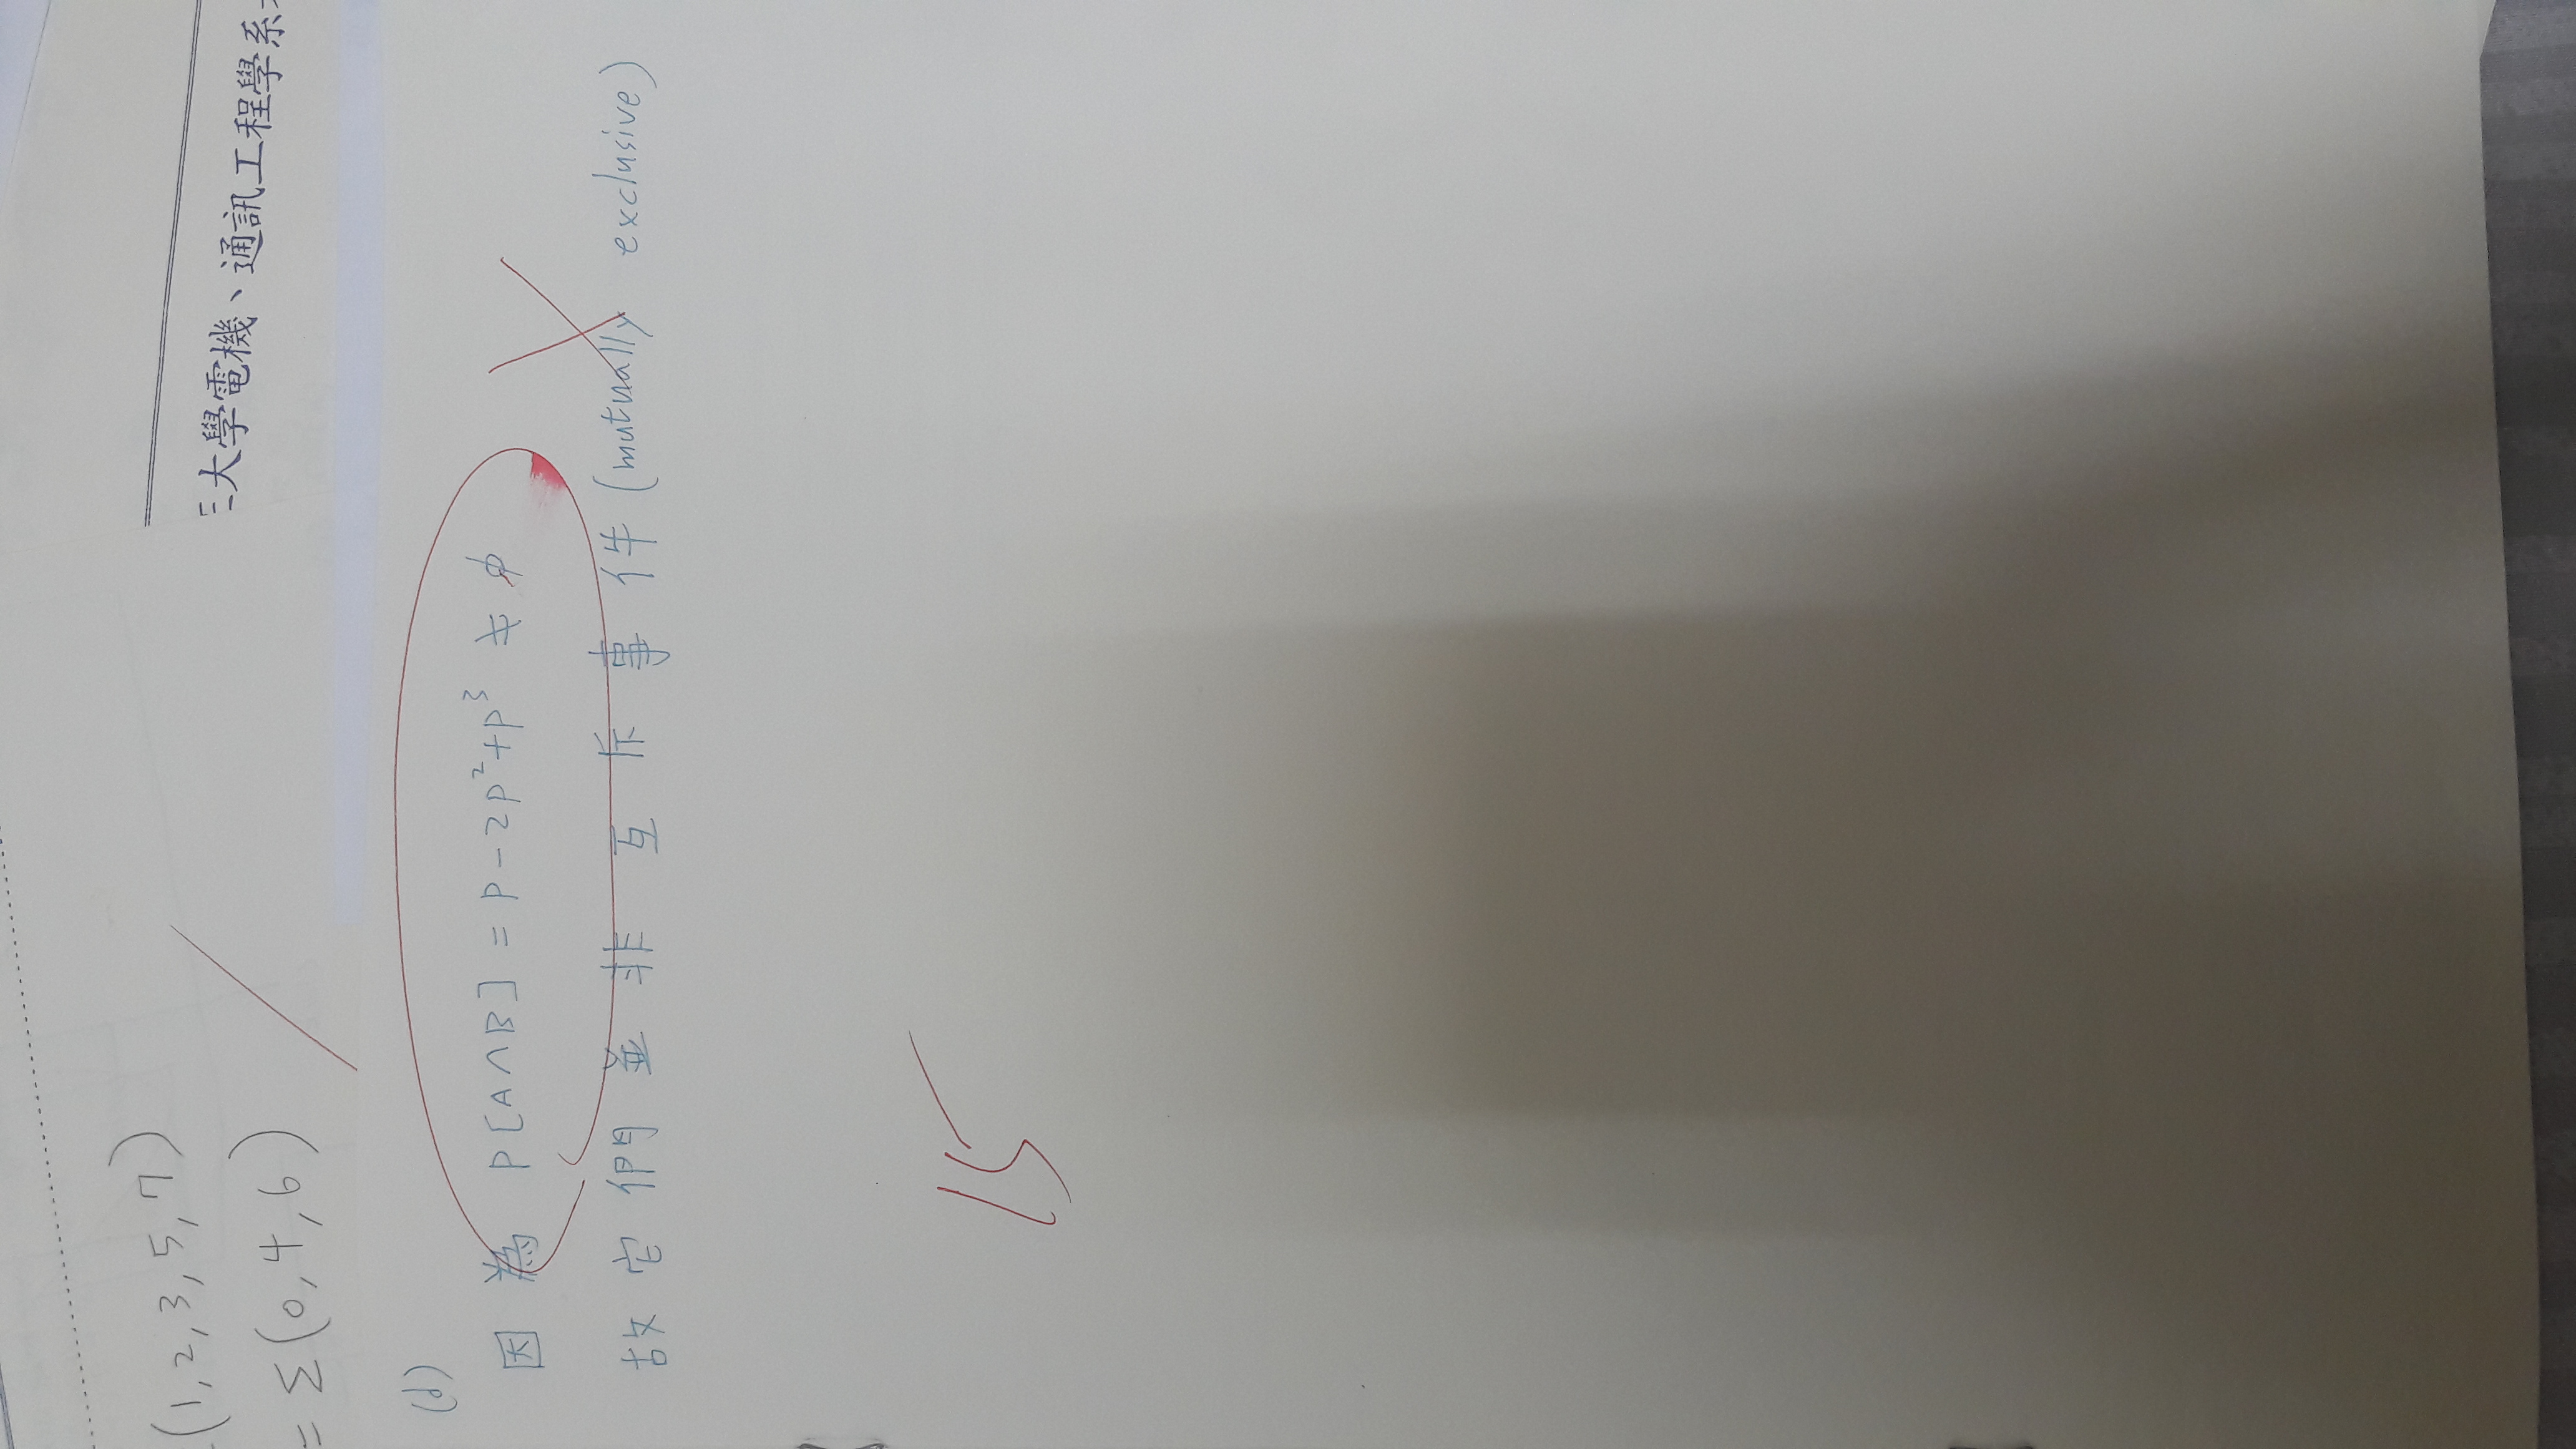 (1,2,3,5,7)
= Σ(0,4,6)
大學電機、通訊工程學系
(d)
因為 P[A∩B] = P-2P²+P³ ≠ ϕ
故它們並非互斥事件(mutually exclusive)
15